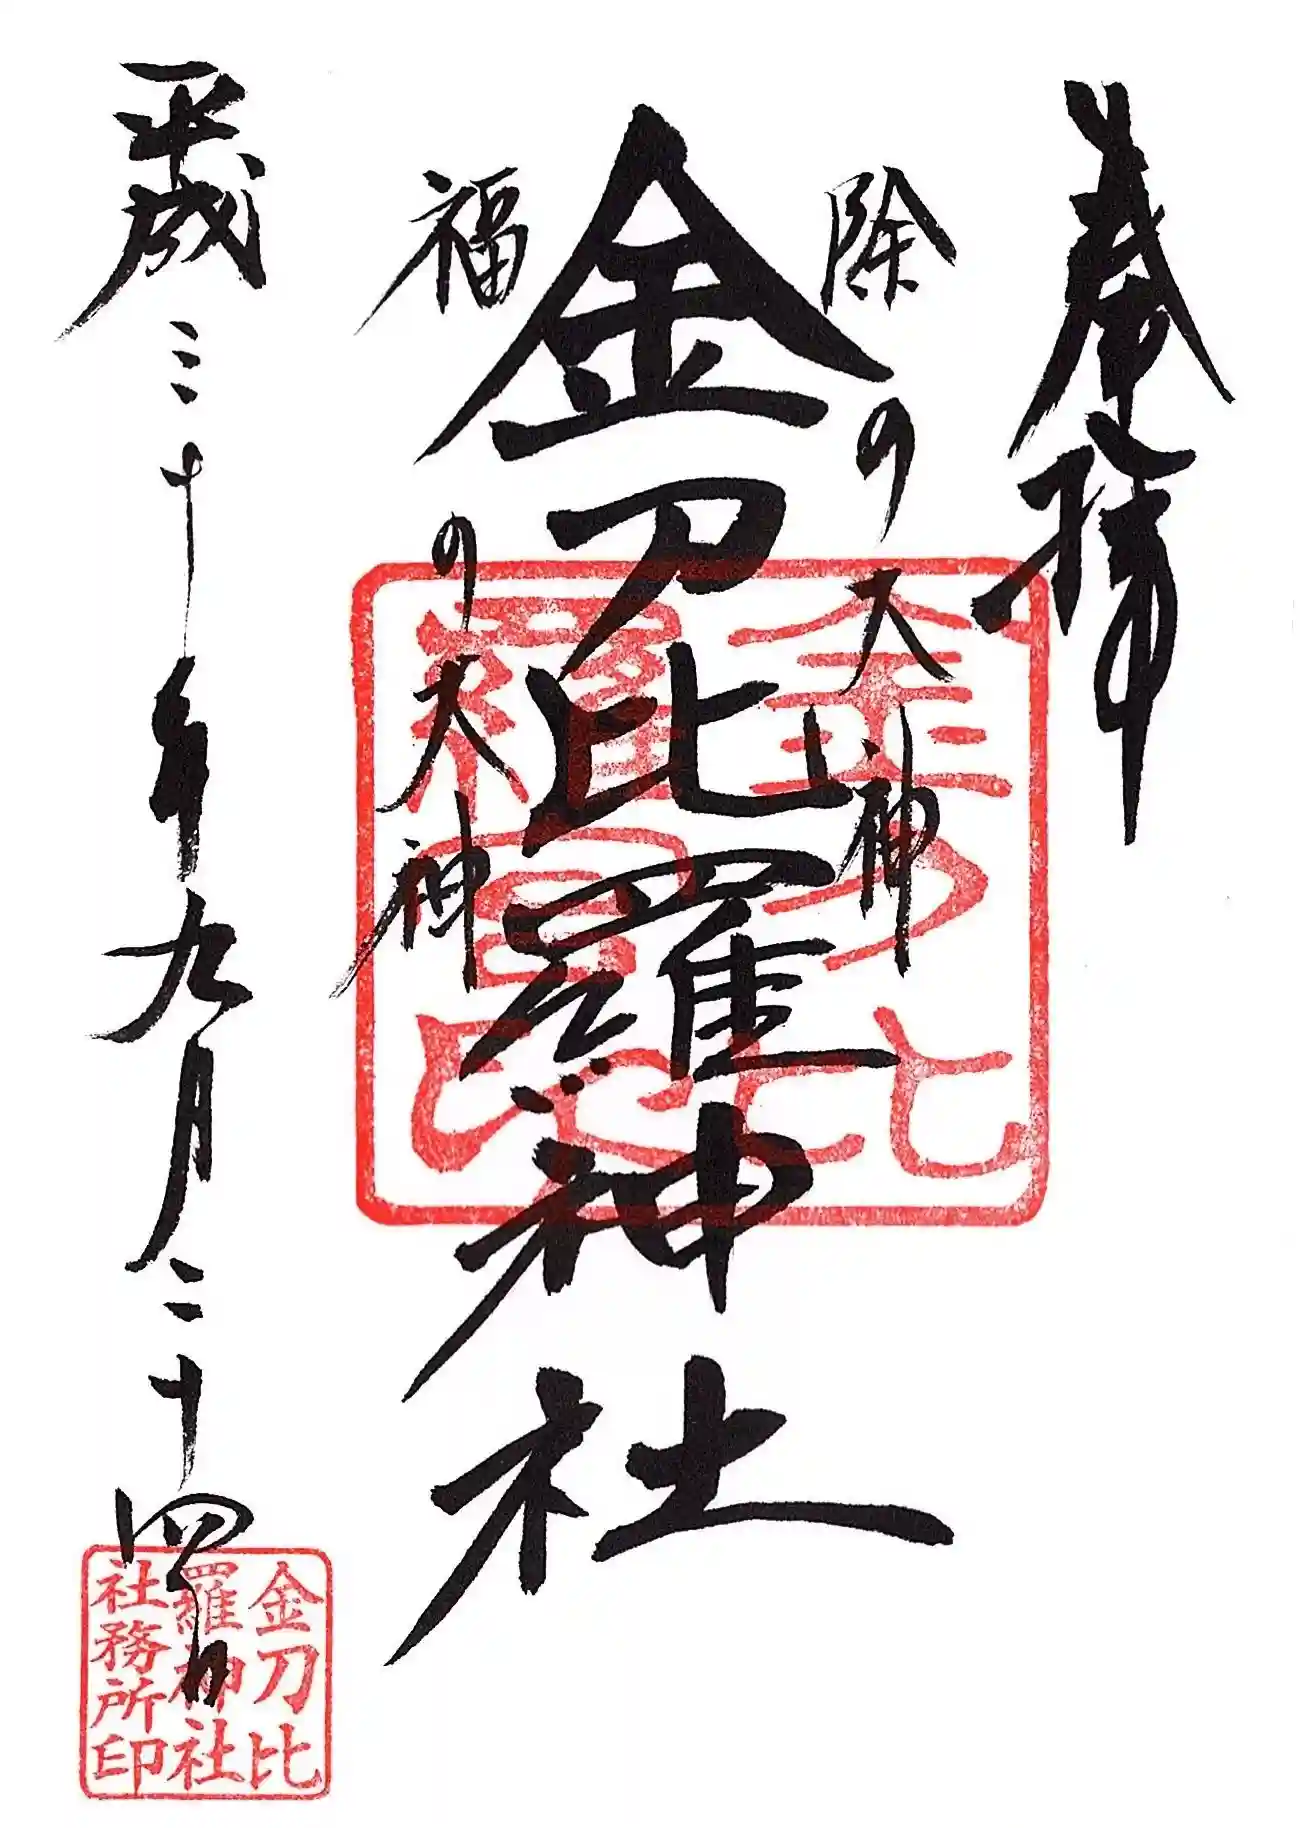 奉拝
除の大神
金刀比羅神社
福の大神
平成三十年九月二十四日
金刀比
羅宮印
金刀比
羅神社
社務所印